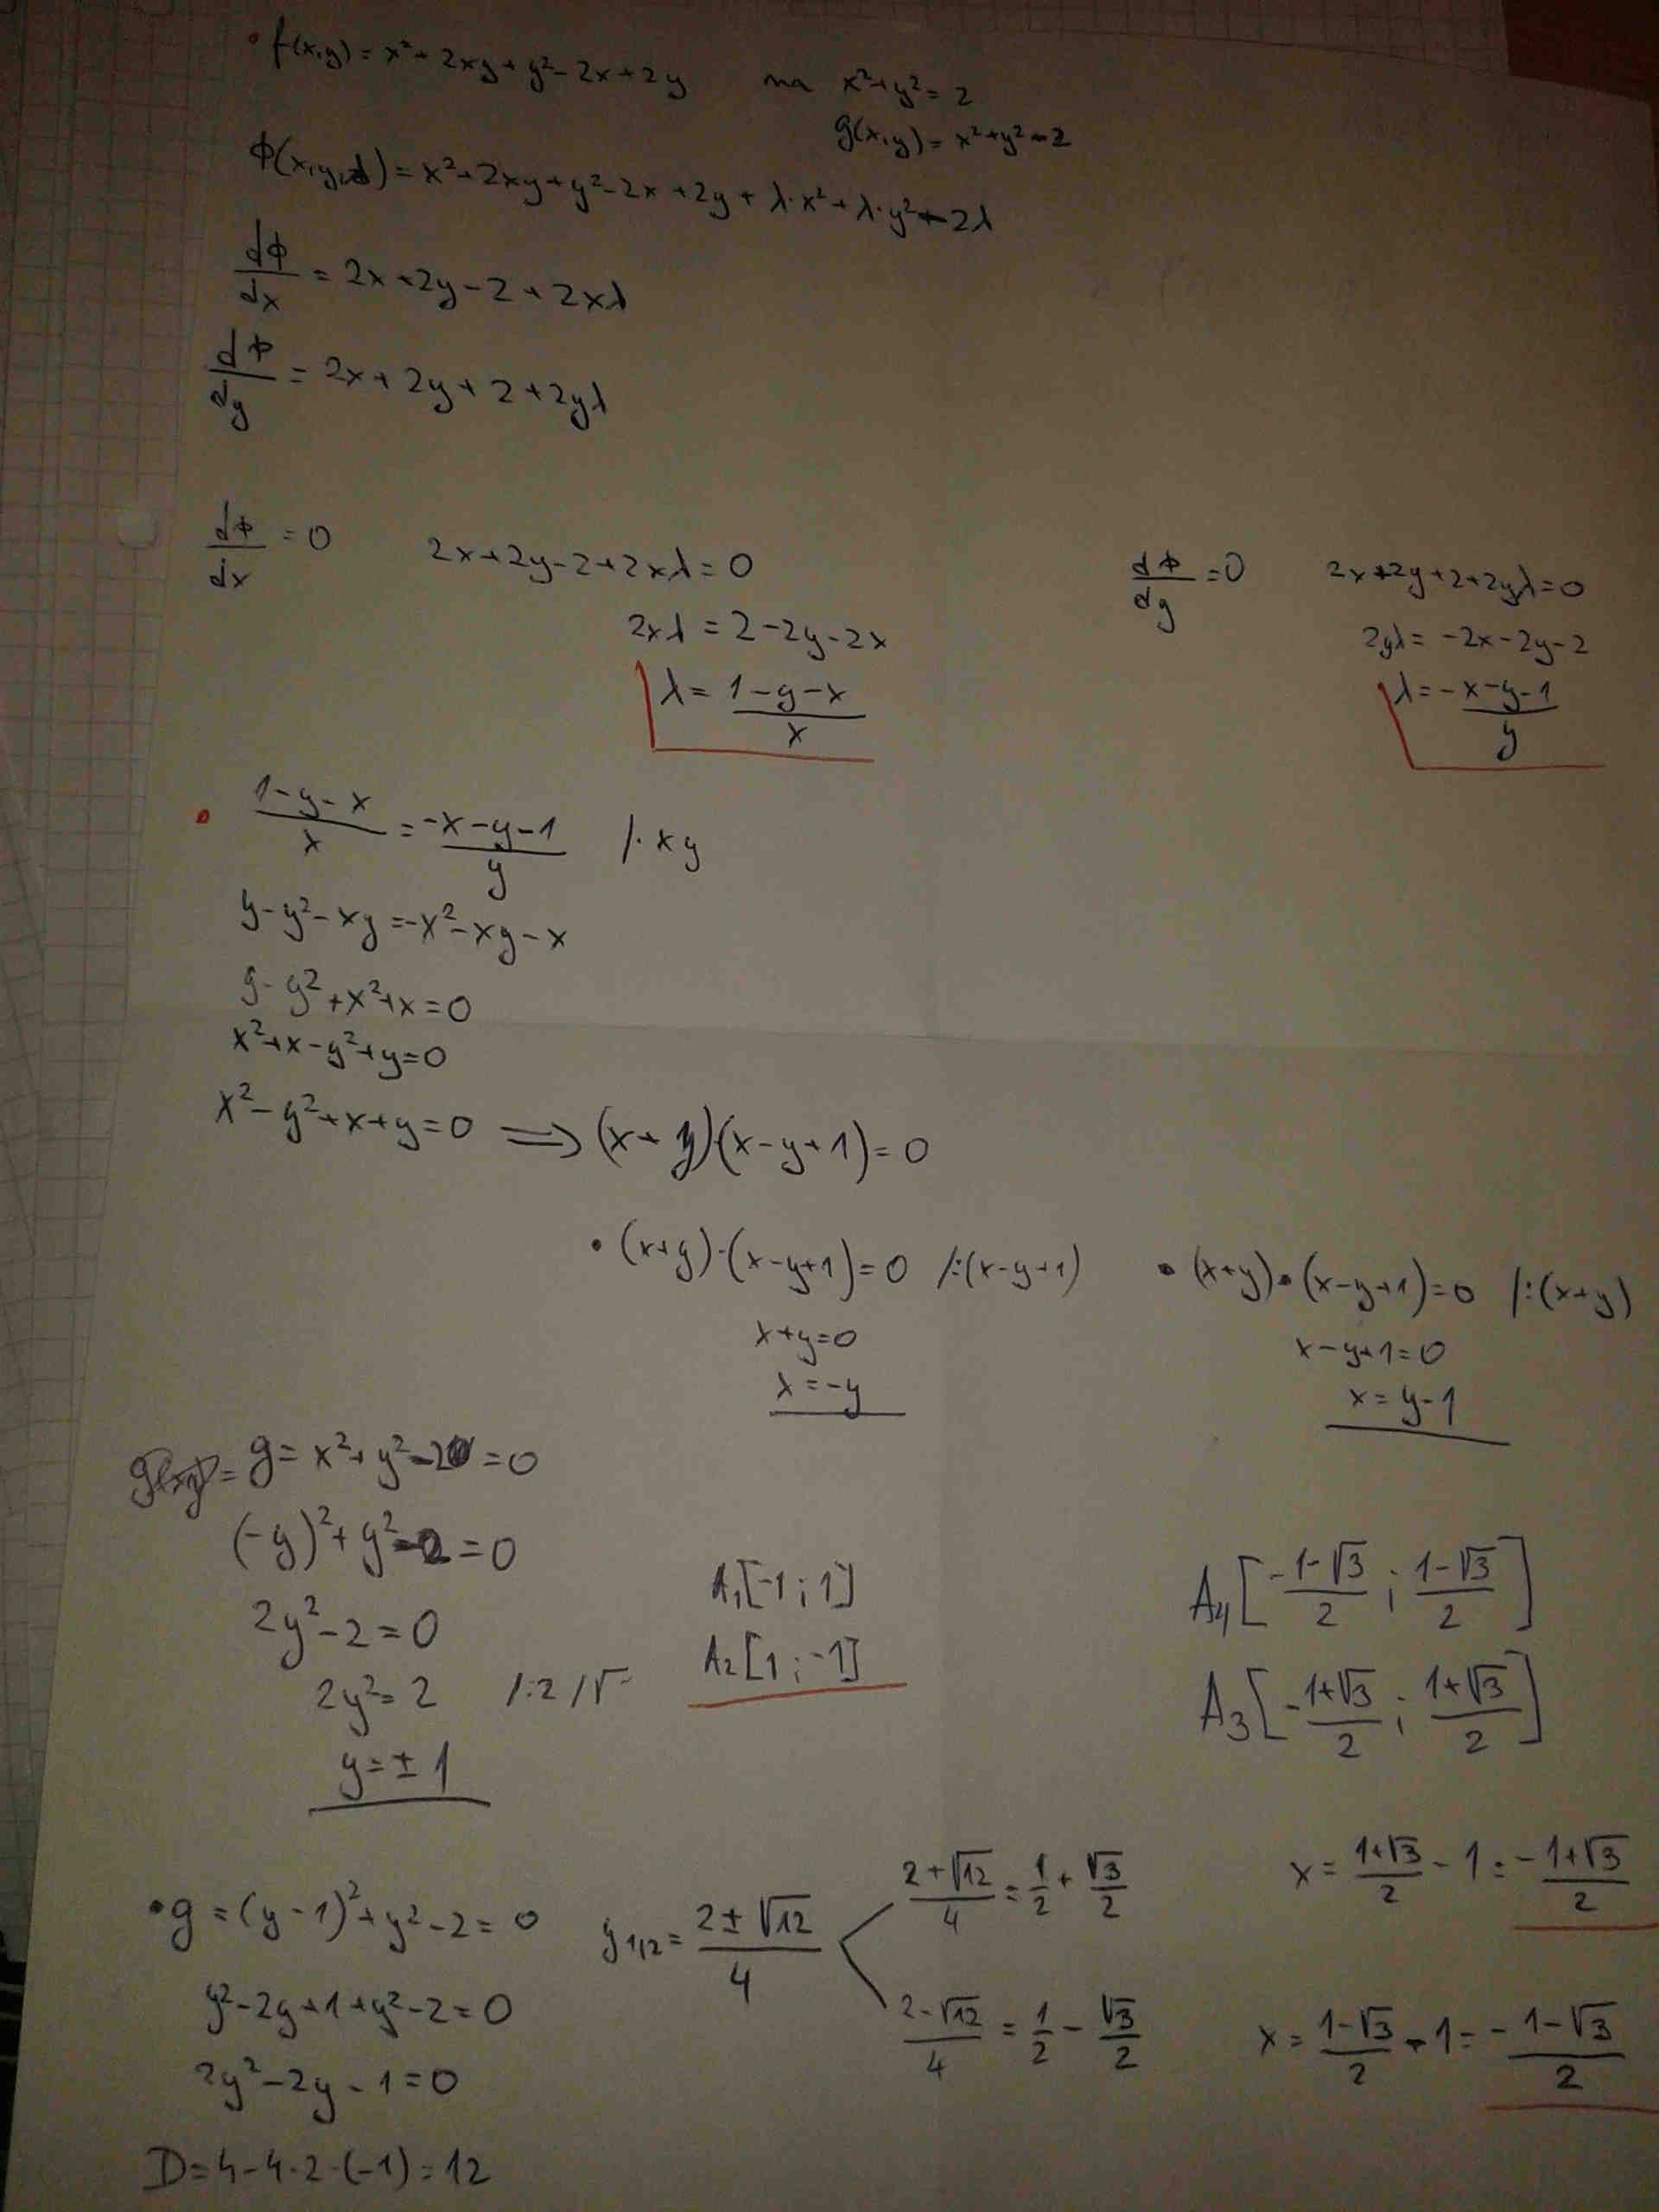 • f(x,y) = x² + 2xy + y² - 2x + 2y na x² + y² = 2
g(x,y) = x² + y² - 2
ϕ(x,y,λ) = x² + 2xy + y² - 2x + 2y + λ·x² + λ·y² - 2λ
dϕ/dx = 2x + 2y - 2 + 2xλ
dϕ/dy = 2x + 2y + 2 + 2yλ
dϕ/dx = 0 2x + 2y - 2 + 2xλ = 0
2xλ = 2 - 2y - 2x
λ = (1 - y - x)/x
dϕ/dy = 0 2x + 2y + 2 + 2yλ = 0
2yλ = -2x - 2y - 2
λ = (-x - y - 1)/y
• (1 - y - x)/x = (-x - y - 1)/y /· xy
y - y² - xy = -x² - xy - x
y - y² + x² + x = 0
x² + x - y² + y = 0
x² - y² + x + y = 0 ⟹ (x + y)(x - y + 1) = 0
• (x+y)·(x - y + 1) = 0 /:(x - y + 1)
x + y = 0
x = -y
• (x+y)·(x - y + 1) = 0 /:(x+y)
x - y + 1 = 0
x = y - 1
g = x² + y² - 2 = 0
(-y)² + y² - 2 = 0
2y² - 2 = 0
2y² = 2 /:2 /√
y = ± 1
A₁[-1 ; 1]
A₂[1 ; -1]
A₄[-1-√3/2 ; 1-√3/2]
A₃[-1+√3/2 ; 1+√3/2]
• g = (y - 1)² + y² - 2 = 0
y² - 2y + 1 + y² - 2 = 0
2y² - 2y - 1 = 0
D = 4 - 4·2·(-1) = 12
y₁,₂ = (2 ± √12)/4
(2 + √12)/4 = 1/2 + √3/2
(2 - √12)/4 = 1/2 - √3/2
x = (1+√3)/2 - 1 = -1+√3/2
x = (1-√3)/2 - 1 = -1-√3/2